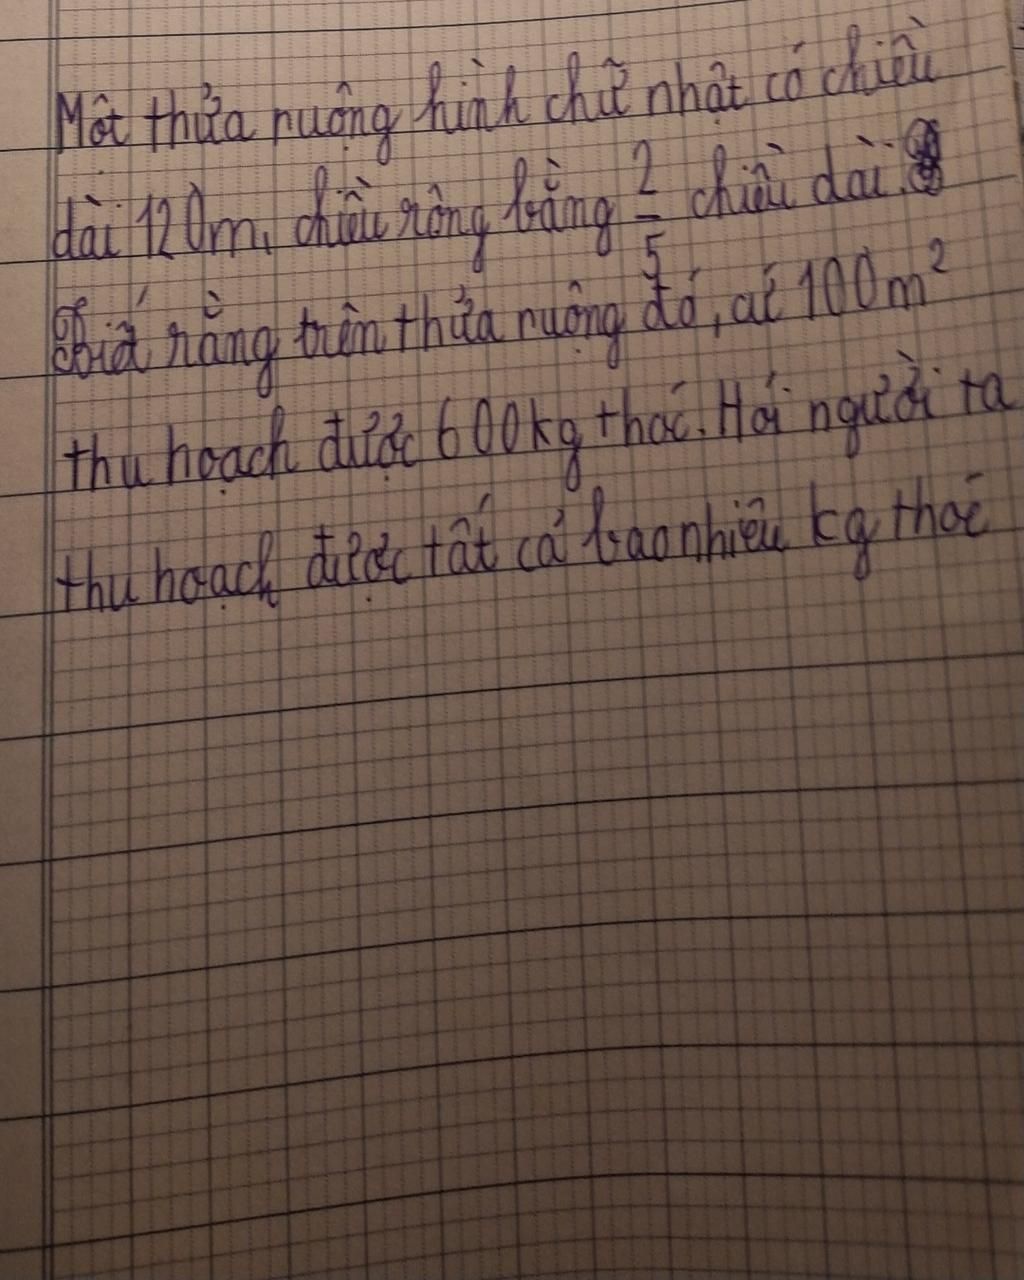 Một thửa ruộng hình chữ nhật có chiều
dài 120m, chiều rộng bằng 2/5 chiều dài.
Biết rằng trên thửa ruộng đó, cứ 100m²
thu hoạch được 600kg thóc. Hỏi người ta
thu hoạch được tất cả bao nhiêu kg thóc